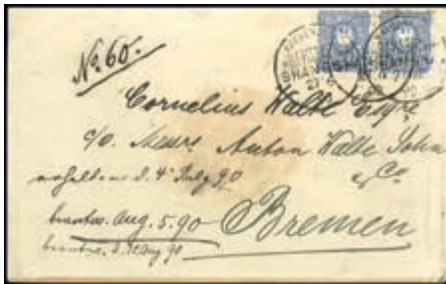 No. 60.
SHANGHAI
Cornelius Walte Esqre
c/o. Messrs Anton Walte John
& Co
erhalten d. 4 July 90
beantw. Aug. 5. 90
Bremen
beantw. Aug 90